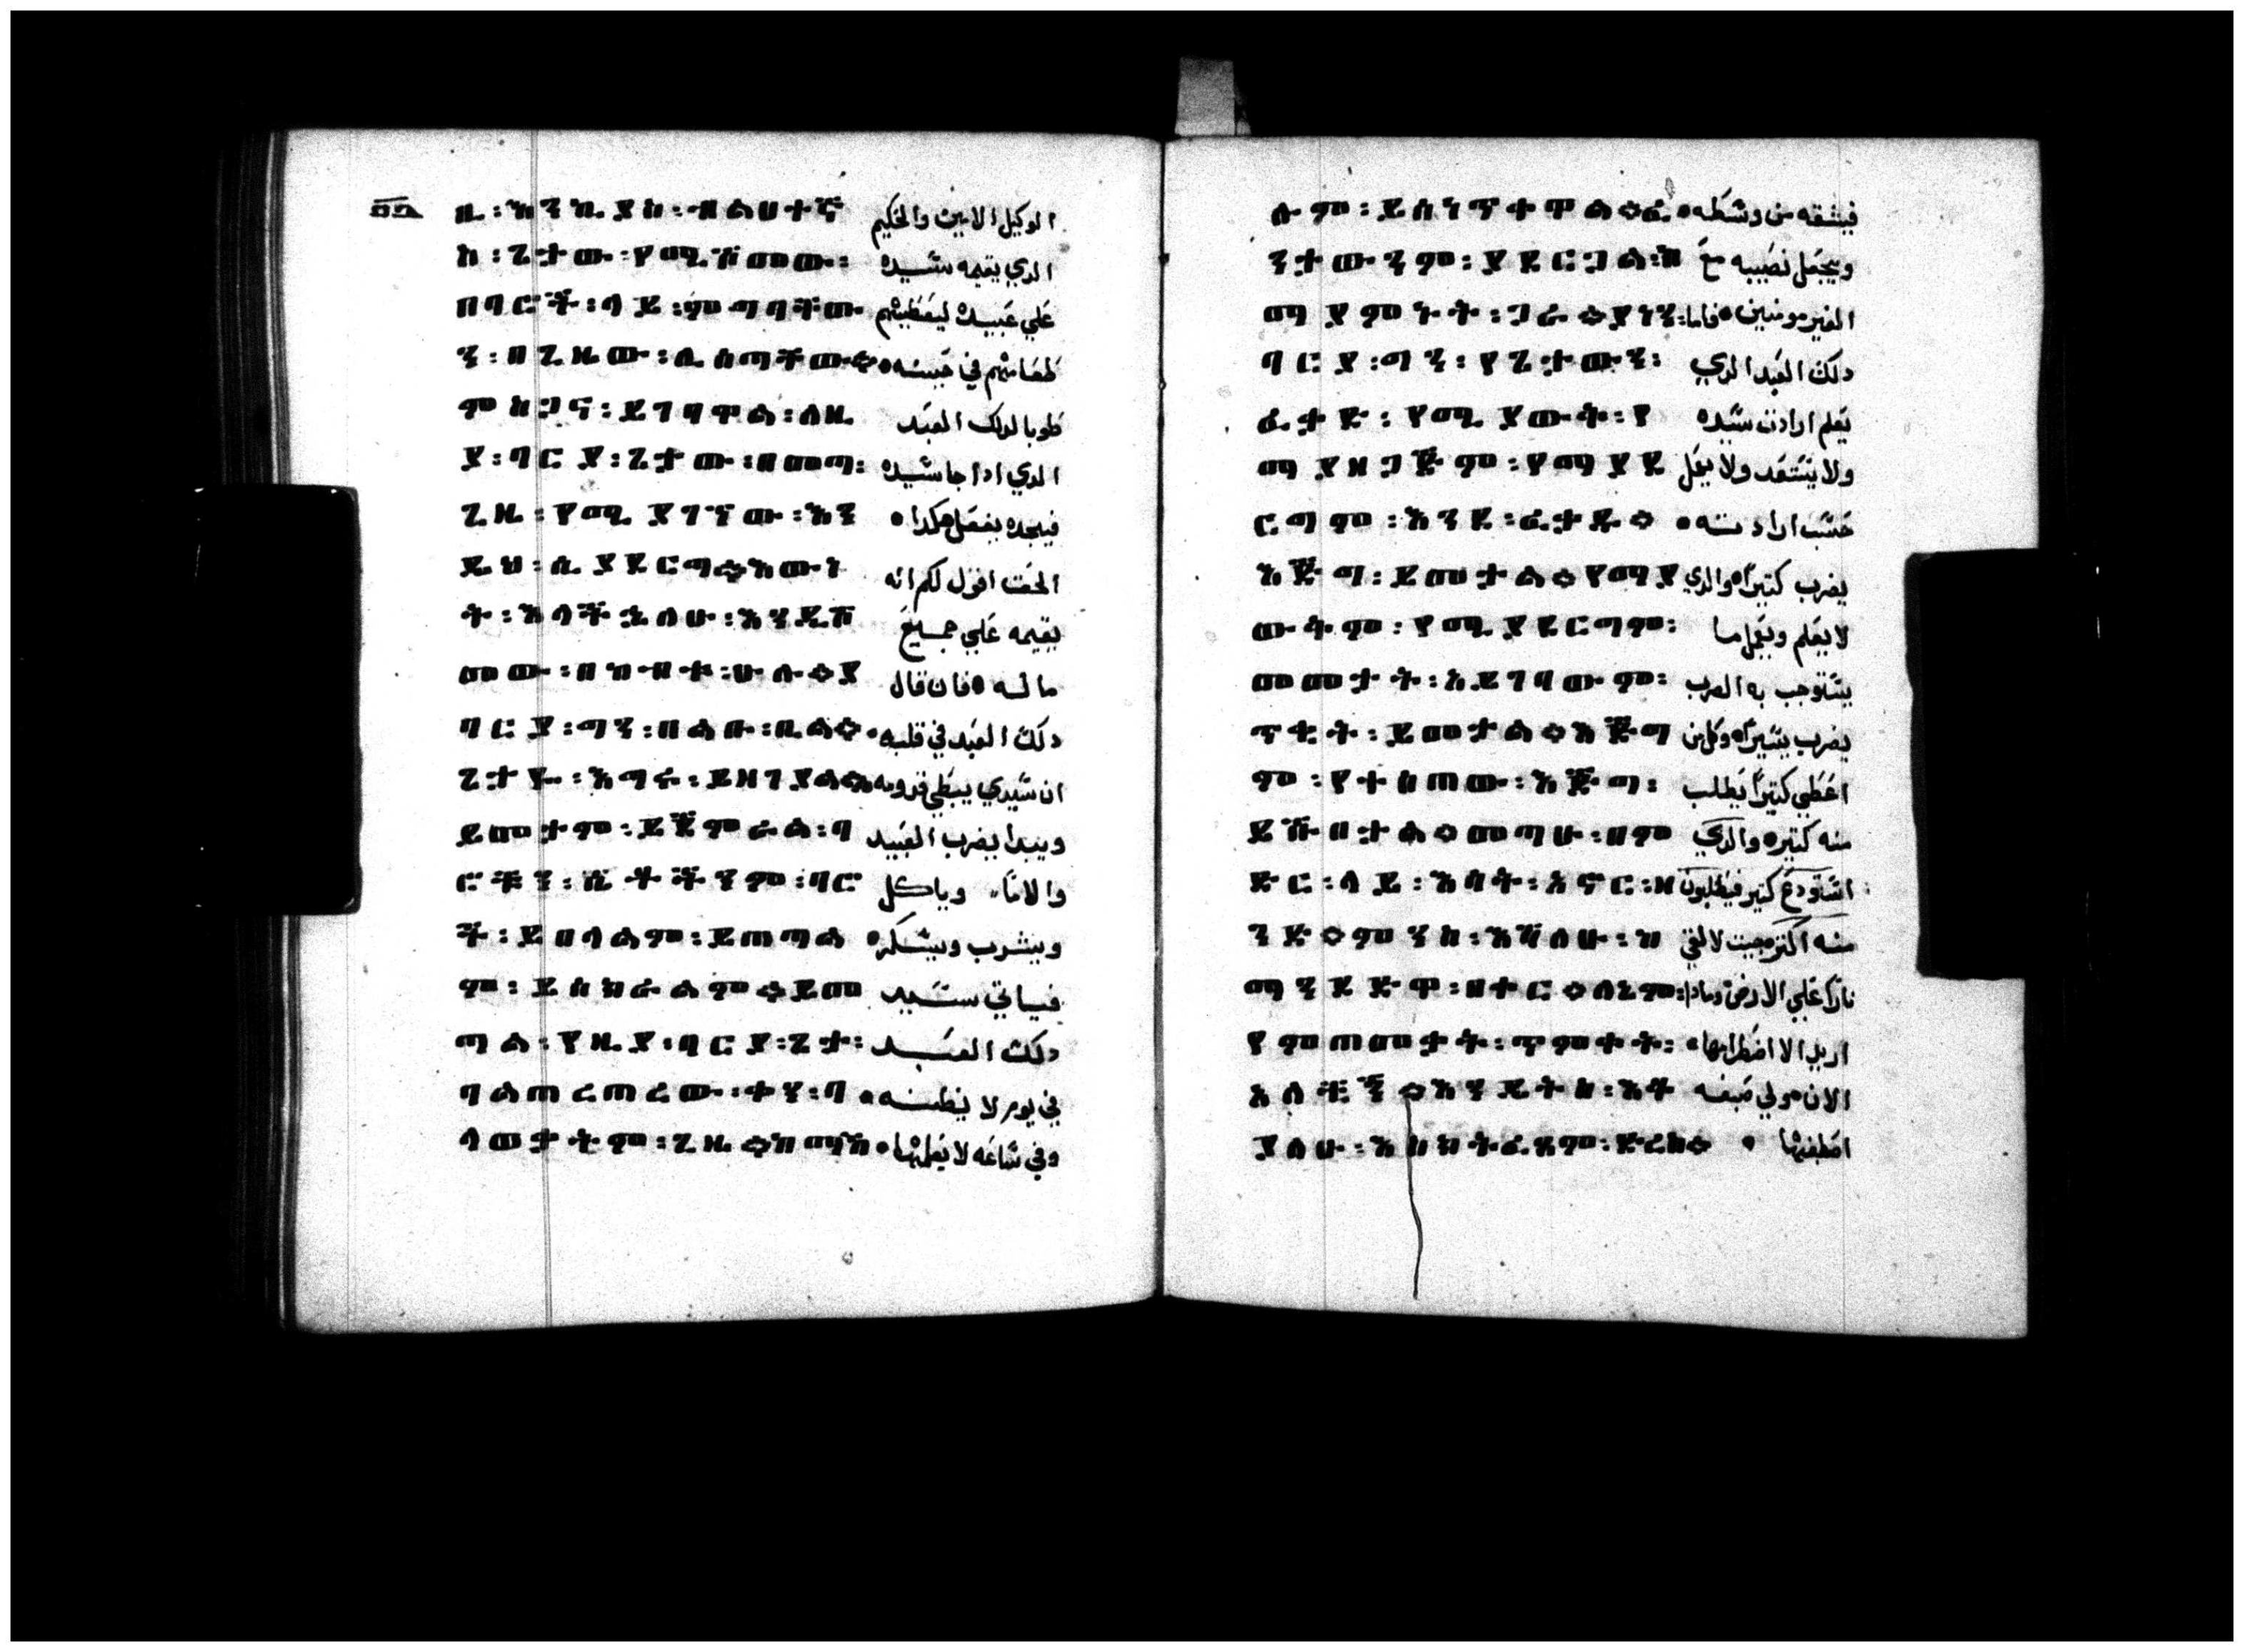 ፶፭
ዚ፡እንኪያስ፡ብልህተኛ الوكيل الامين والحكيم
ስ፡ጌታው፡የሚሾመው፡ الدي يقيمه سيده
በባርቾ፡ላይ፡ምግባቸው علي عبيده ليعطيهم
ን፡በጊዜው፡ሊሰጣቸው። طعامهم في حينه
ምስጉን፡ይገባዋል፡ለዚ طوبا لدلك العبد
ያ፡ባርያ፡ጌታው፡በመጣ፡ الدي ادا جا سيده
ጊዜ፡የሚያገኘው፡እን فيجده يفعل هكدا
ዲህ፡ሲያደርግ።እውነ الحق اقول لكم انه
ት፡እላችኋለሁ፡እንዲሾ يقيمه علي جميع
መው፡በከብቱ፡ሁሉ።ያ ما له فان قال
ባርያ፡ግን፡በልቡ፡ቢል። دلك العبد في قلبه
ጌታዬ፡ይዘገያል። ان سيدي يبطي قدومه
ይመታም፡ይጀምራል፡ባ ويبدا يضرب العبيد
ርቾችን፡ሴቶችንም፡ባር والاما وياكل
ቾ፡ይበላልም፡ይጠጣል ويشرب ويسكر
ም፡ይሰክራልም።ይመ فياتي سيد
ጣል፡የዚያ፡ባርያ፡ጌታ፡ دلك العبد
ባልጠረጠረው፡ቀን፡ባ في يوم لا يظنه
ላወቃትም፡ጊዜ።ከማኸ وفي ساعه لا يعلمها
ሉም፡ይሰነጥቀዋል።ፊ فيشقه من وسطه
ንታውንም፡ያደርጋል፡ከ ويجعل نصيبه مع
ማያምኑት፡ጋራ።ያነን፡ الغير مومنين فاما
ባርያ፡ግን፡የጌታውን፡ دلك العبد الدي
ፈቃድ፡የሚያውቅ፡የ يعلم ارادت سيده
ማያዘጋጅም፡የማያደ ولا يستعد ولا يعمل
ርግም፡እንደ፡ፈቃዱ። حسب ارادته
እጅግ፡ይመታል።የማያ يضرب كتيرا والدي
ውቅም፡የሚያደርግም፡ لا يعلم ويعمل ما
መመታት፡እይገባውም፡ يستوجب به الضرب
ጥቂት፡ይመታል።እጅግ يضرب يسيرا وكل من
ም፡የተሰጠው፡እጅግ፡ اعطي كتيرا يطلب
ይሹበታል።መጣሁ፡በም منه كتير والدي
ድር፡ላይ፡እሳት፡እኖር፡ዘ استودع كتير فيطلبون
ንድ።ምንስ፡እሻለሁ፡ከ منه اكتر جيت لالقي
ማንደድዋ፡በቀር።አለኝም፡ نارا علي الارض ومادا
የምጠመቃት፡ጥምቀት፡ اريد الا اضطرامها
አላችኝ።እንዴት፡ስ፡እት الان لي صبغه
ያለሁ፡እስክትፈጸም፡ድረስ። اصطبغها